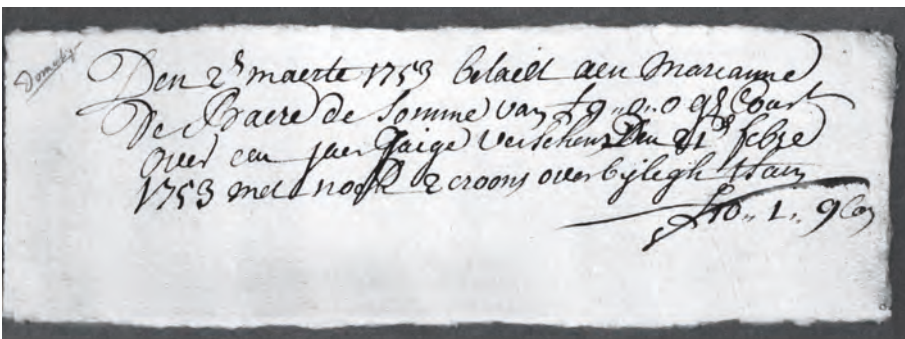 Den 2s maerte 1753 betaelt aen Marianne
De Baere de Somme van £ 9 „ 0 „ 0 Court
over een jaer gaige verschenen den 21 febre
1753 met noch 2 croons over bijlegh tsam
£ 10 „ 1 „ 9 Co